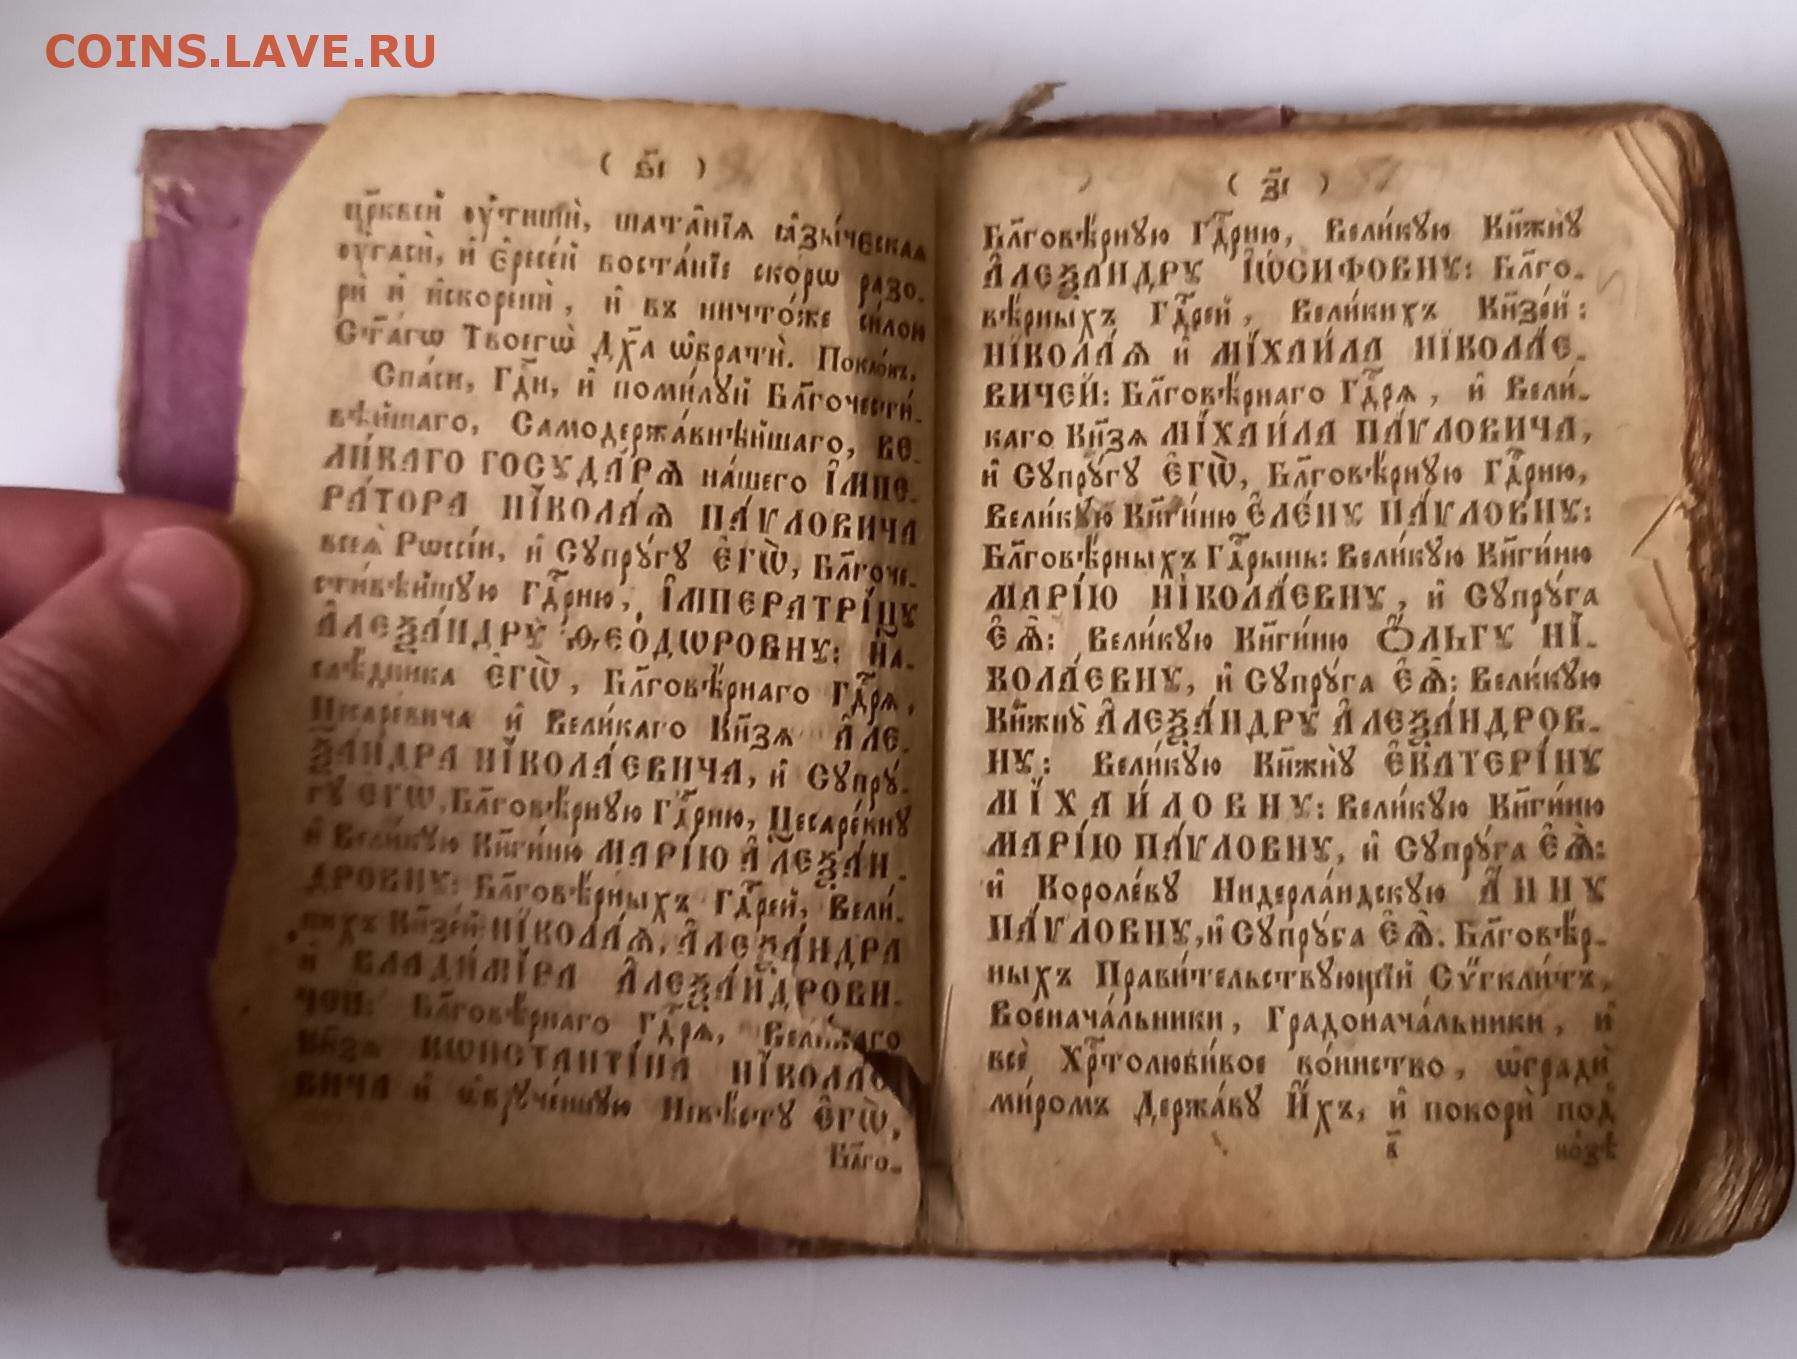 COINS.LAVE.RU
( ѕ҃і )
цр҃квей ᲂу҆тишѝ, шата̑нїѧ ꙗ҆зы́ческаѧ
ᲂу҆гасѝ, и҆ є҆ресе́й воста̑нїѧ ско́рѡ разо-
рѝ и҆ и҆скоренѝ, и҆ въ ничто́же си́лою
Ст҃а́гѡ Твоегѡ̀ Дх҃а ѡ҆братѝ. Покло́нъ.
Спасѝ, Гдⷭ҇и, и҆ поми́луй Бл҃гочести́-
вѣйшаго, Самодержа́внѣйшаго, ВЕ-
ЛИ́КАГО ГОСУДА́РѦ на́шего І҆МПЕ-
РА́ТОРА НІКОЛА́Ѧ ПА́ѴЛОВИЧА
всеѧ̀ Рѡссі́и, и҆ Сꙋпрꙋ́гꙋ Є҆ГѠ̀, Бл҃гоче-
сти́вѣйшꙋю Гдⷭ҇рню, І҆МПЕРАТРІ́ЦУ
А҆ЛЕѮА́НДРУ Ѳ҆ЕО́ДѠРОВНУ: На-
слѣ́дника Є҆ГѠ̀, Бл҃говѣ́рнаго Гдⷭ҇рѧ,
Цесаре́вича и҆ Вели́каго Кн҃зѧ А҆ЛЕ-
ѮА́НДРА НІКОЛА́ЕВИЧА, и҆ Сꙋпрꙋ́-
гꙋ Є҆ГѠ̀, Бл҃говѣ́рнꙋю Гдⷭ҇рню, Цесаре́внꙋ
и҆ Вели́кꙋю Кн҃ги́ню МАРІ́Ю А҆ЛЕѮА́Н-
ДРОВНУ: Бл҃говѣ́рныхъ Гдⷭ҇рей, Вели́-
кихъ Кн҃зе́й НІКОЛА́Ѧ, А҆ЛЕѮА́НДРА
и҆ ВЛАДИ́МІРА А҆ЛЕѮА́НДРОВИ-
ЧЕЙ: Бл҃говѣ́рнаго Гдⷭ҇рѧ, Вели́каго
Кн҃зѧ КѠНСТАНТІ́НА НІКОЛА́Е
ВИЧА и҆ ѡ҆брꙋче́ннꙋю Невѣ́стꙋ Є҆ГѠ̀,
Бл҃го-
( з҃і )
Бл҃говѣ́рнꙋю Гдⷭ҇рню, Вели́кꙋю Кн҃жнꙋ̀
А҆ЛЕѮА́НДРУ І҆Ѡ́СИФОВНУ: Бл҃го-
вѣ́рныхъ Гдⷭ҇рей, Вели́кихъ Кн҃зе́й:
НІКОЛА́Ѧ и҆ МІХАИ́ЛА НІКОЛА́Е-
ВИЧЕЙ: Бл҃говѣ́рнаго Гдⷭ҇рѧ, и҆ Вели́-
каго Кн҃зѧ МІХАИ́ЛА ПА́ѴЛОВИЧА,
и҆ Сꙋпрꙋ́гꙋ Є҆ГѠ̀, Бл҃говѣ́рнꙋю Гдⷭ҇рню,
Вели́кꙋю Кн҃ги́ню Є҆ЛЕ́НУ ПА́ѴЛОВНУ:
Бл҃говѣ́рныхъ Гдⷭ҇рынь: Вели́кꙋю Кн҃ги́ню
МАРІ́Ю НІКОЛА́ЕВНУ, и҆ Сꙋпрꙋ́га
Є҆Ѧ̀: Вели́кꙋю Кн҃ги́ню Ѻ҆́ЛЬГУ НІ-
КОЛА́ЕВНУ, и҆ Сꙋпрꙋ́га Є҆Ѧ̀: Вели́кꙋю
Кн҃жнꙋ̀ А҆ЛЕѮА́НДРУ А҆ЛЕѮА́НДРОВ-
НУ: Вели́кꙋю Кн҃жнꙋ̀ Є҆КАТЕРІ́НУ
МІХАИ́ЛОВНУ: Вели́кꙋю Кн҃ги́ню
МАРІ́Ю ПА́ѴЛОВНУ, и҆ Сꙋпрꙋ́га Є҆Ѧ̀:
и҆ Короле́вꙋ Нидерла́ндскꙋю А҆́ННУ
ПА́ѴЛОВНУ, и҆ Сꙋпрꙋ́га Є҆Ѧ̀. Бл҃говѣ́р-
ныхъ Прави́тельствꙋющїй Сѵгкли́тъ,
Военача́льники, Градонача́льники, и҆
всѐ Хрⷭ҇толюби́вое во́инство, ѡ҆градѝ
ми́ромъ Держа́вꙋ И҆́хъ, и҆ покорѝ под̾
в҃ но́зѣ